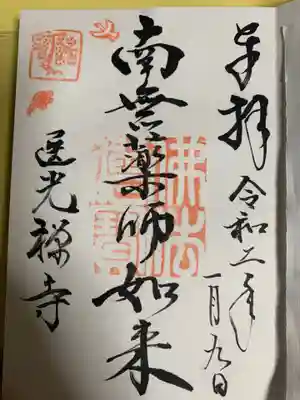 奉拝
令和二年
一月九日
南無薬師如来
佛法
僧寶
医光禅寺